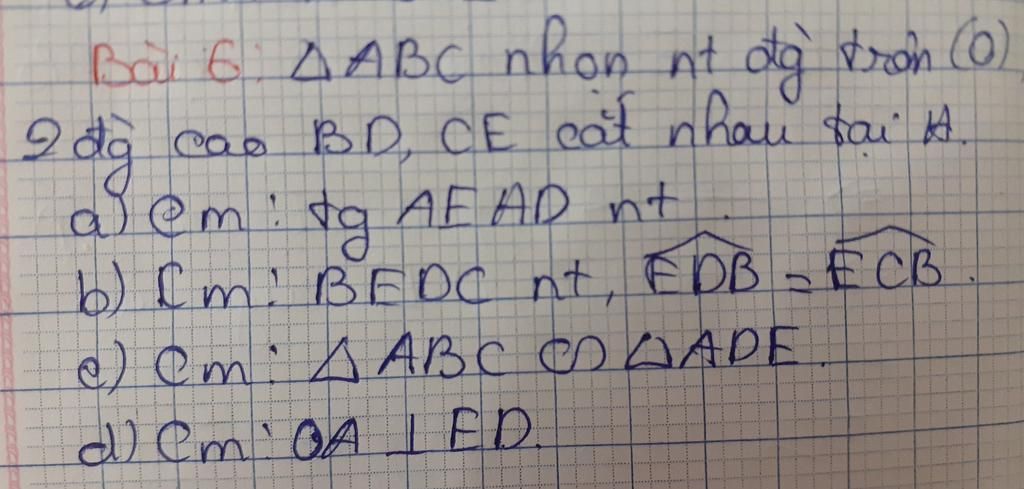 Bài 6: △ABC nhọn nt đg tròn (O)
2 đg cao BD, CE cắt nhau tại H.
a) Cm: tg AEHD nt.
b) Cm: BEDC nt, \widehat{EDB} = \widehat{ECB}.
c) Cm: △ABC ∽ △ADE.
d) Cm: OA ⊥ ED.